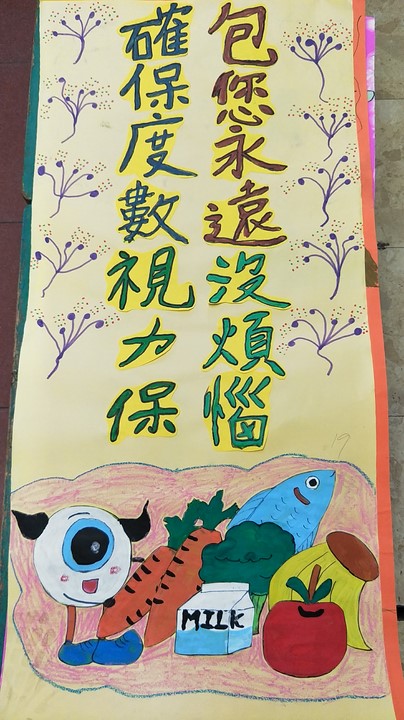 包您永遠沒煩惱
確保度數視力保
19
MILK